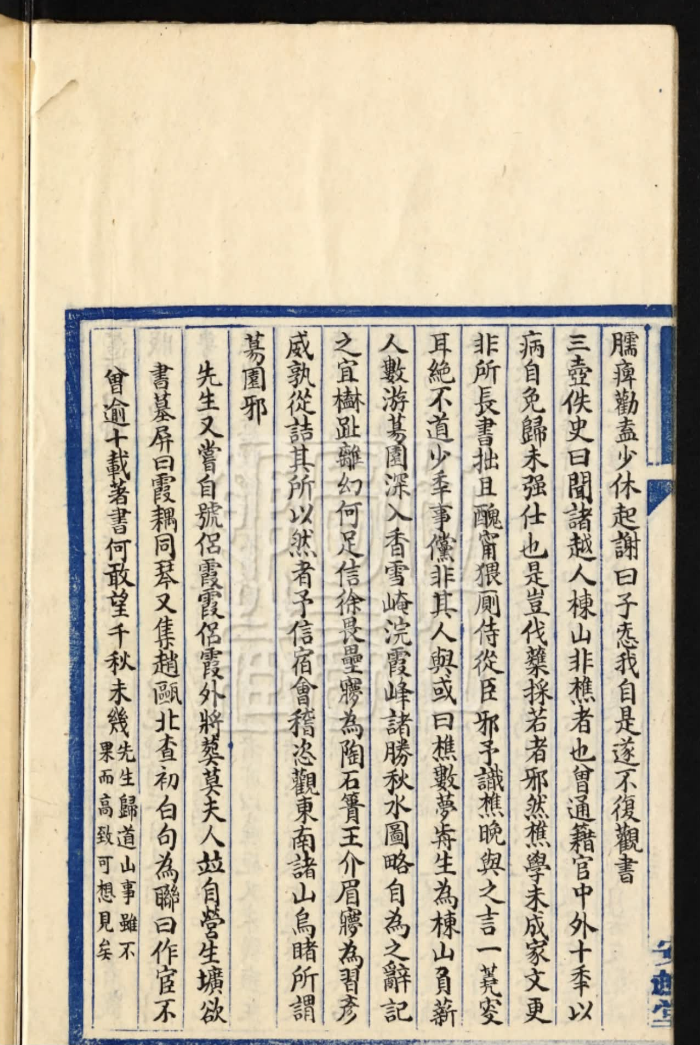 臑痺勸盍少休起謝曰子悉我自是遂不復觀書
三壺佚史曰聞諸越人棟山非樵者也曾通籍官中外十季以
病自免歸未强仕也是豈伐蘖採若者邪然樵學未成家文更
非所長書拙且醜甯猥厠侍從臣邪予識樵晚與之言一莞突
耳絶不道少季事儻非其人與或曰樵數夢耑生為棟山負薪
人數游蓦園深入香雪崦浣霞峰諸勝秋水圖略自為之辭記
之宜樹趾離幻何足信徐畏壘寱為陶石簣王介眉寱為習彥
威孰從詰其所以然者予信宿會稽恣觀東南諸山烏睹所謂
蓦園邪
先生又嘗自號侶霞霞侶霞外將葬莫夫人竝自營生壙欲
書墓屏曰霞耦同琴又集趙甌北查初白句為聯曰作宦不
曾逾十載著書何敢望千秋未幾先生歸道山事雖不
果而高致可想見矣